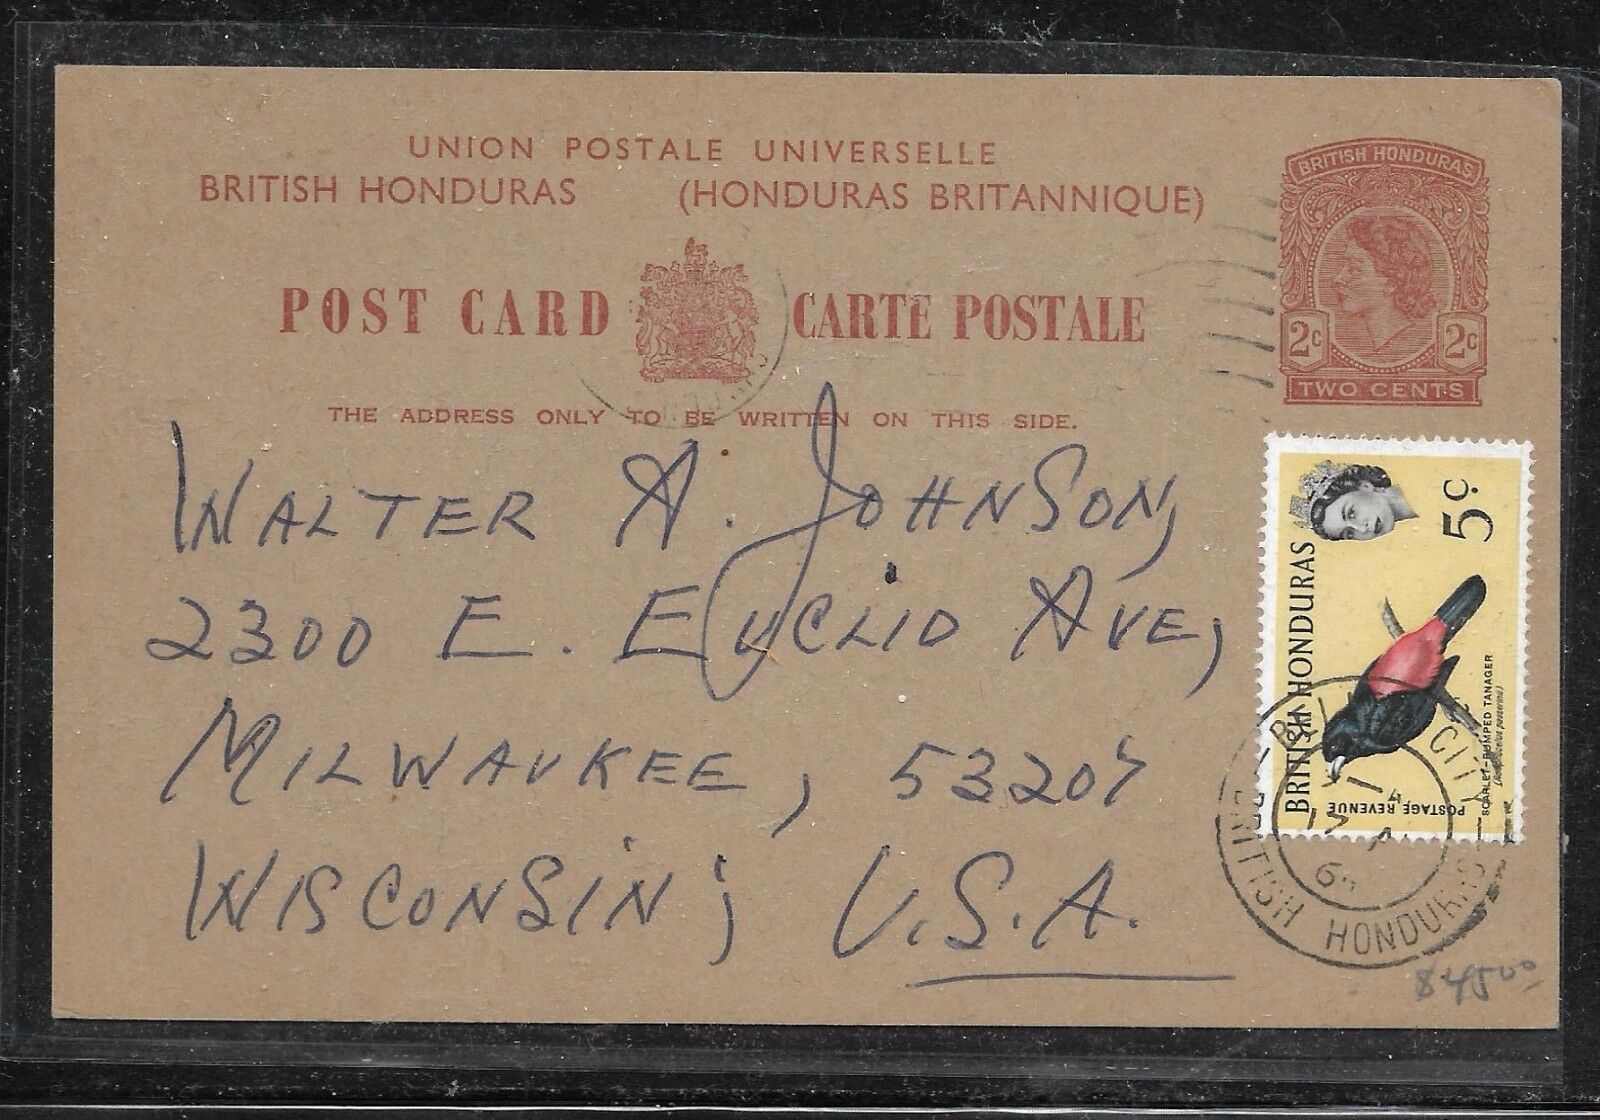 UNION POSTALE UNIVERSELLE
BRITISH HONDURAS (HONDURAS BRITANNIQUE)
POST CARD CARTE POSTALE
THE ADDRESS ONLY TO BE WRITTEN ON THIS SIDE.
BRITISH HONDURAS
2c 2c
TWO CENTS
WALTER A. JOHNSON,
2300 E. EUCLID AVE,
MILWAUKEE, 53207
WISCONSIN; U.S.A.
BRITISH HONDURAS
5c
POSTAGE REVENUE
SCARLET-RUMPED TANAGER
CITY
BRITISH HONDURAS
$4500